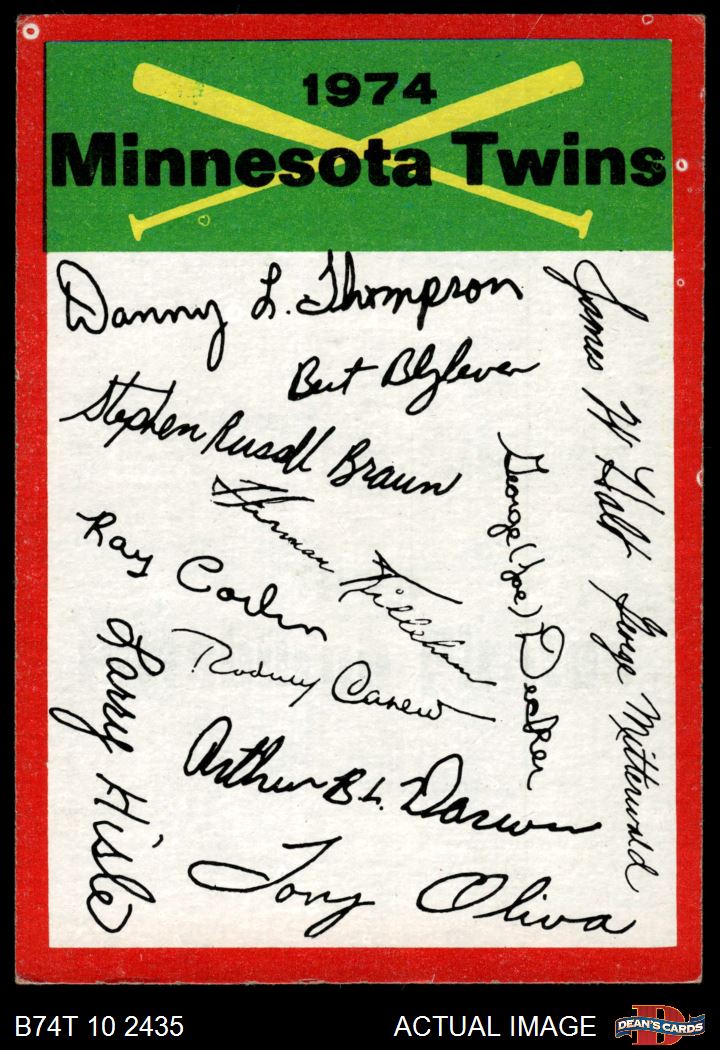 1974
Minnesota Twins
Danny L. Thompson
Bert Blyleven
Stephen Russell Braun
Harmon Killebrew
Ray Corbin
Rodney Carew
Larry Hisle
Arthur B L. Darwin
Tony Oliva
George (Joe) Decker
James W Holt
George Mitterwald
B74T 10 2435
ACTUAL IMAGE
DEAN'S CARDS